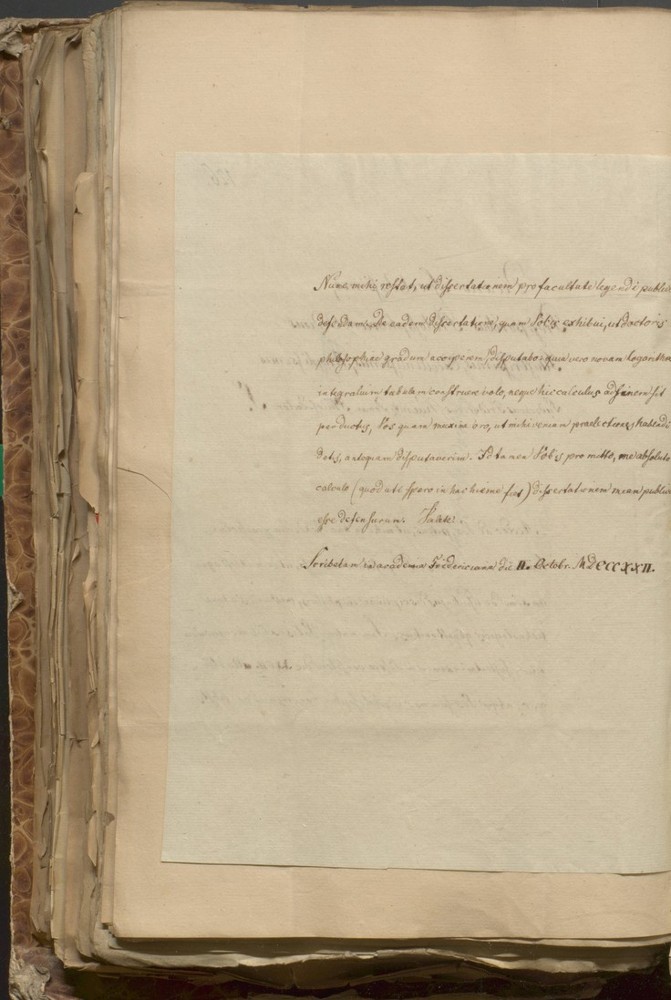 Nunc mihi restat, ut dissertationem pro facultate legendi public
defendam. De eadem dissertatione, quam Vobis exhibui, ut doctoris
philosophiae gradum acciperem, disputabo; quia vero novam logarithm
integralium tabulam construere volo, neque hic calculus ad finem sit
perductus, Vos quam maxime oro, ut mihi veniam praelectiones habendi
detis, antequam disputaverim. Id tamen Vobis promitto, me absoluto
calculo (quod uti spero in hac hieme fiet) dissertationem meam public
esse defensurum. Valete.
Scribebam in academia Fridericiana die II. Octobr. MDCCCXXII.